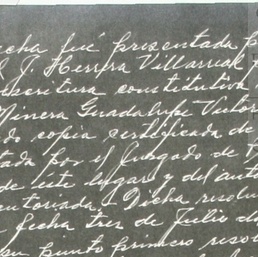 echa fué presentada p
J. Herrera Villarreal
escritura constitutiva
Minera Guadalupe Victor
do copia certificada de
tada por el Juzgado de
de éste lugar y del aut
cutoriada. Dicha resolu
fecha tres de Julio d
su punto primero reso